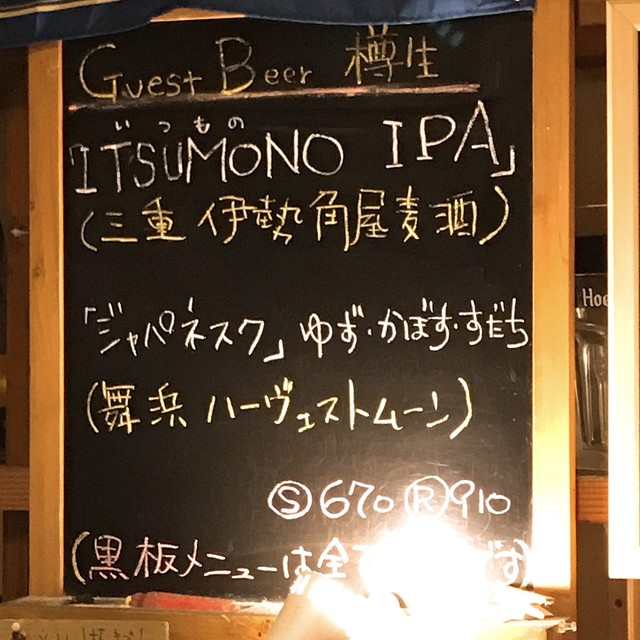 Guest Beer 樽生
いつもの
「ITSUMONO IPA」
(三重 伊勢角屋麦酒)
「ジャパネスク」ゆず・かぼす・すだち
(舞浜 ハーヴェストムーン)
Ⓢ670 Ⓡ910
(黒板メニューは全て です)
Hoe